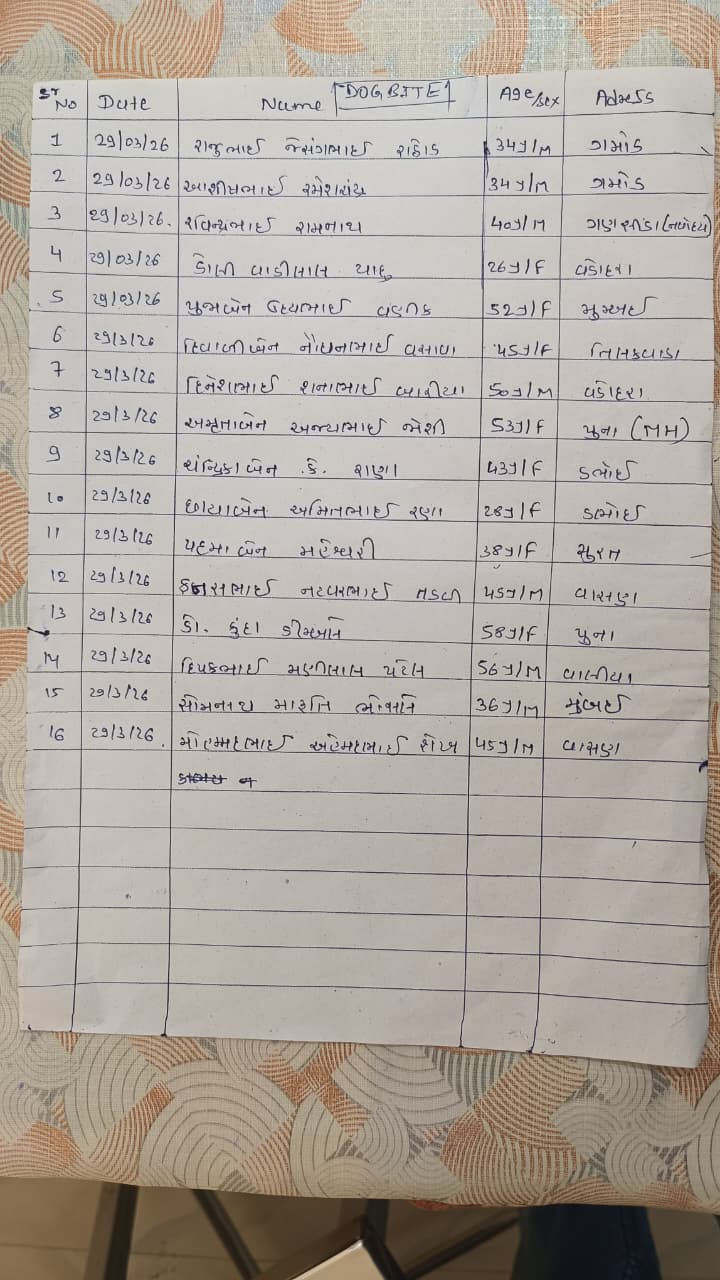 Sr No Date Name DOGBITE Age/sex Adress
1 29/03/26 રાજુભાઈ જેસંગભાઈ રાઠોડ 34y/M ગમોડ
2 29/03/26 આશીષભાઈ રમેશચંદ્ર 34y/M ગમોડ
3 29/03/26. રવિન્દ્રભાઈ રામનાથ 40y/M
4 29/03/26 ડોલી વાડીલાલ 26y/F વડોદરા
5 29/03/26 ઉદયભાઈ 52y/F મુમ્બઈ
6 29/3/26 દિવાળીબેન વસાવા 45y/F તિલકવાડા
7 29/3/26 દિનેશભાઈ શનાભાઈ બારીયા 50y/M વડોદરા
8 29/3/26 અમૃતાબેન અજયભાઈ જોશી 53y/F પુના (MH)
9 29/3/26 ચંન્દ્રિકાબેન .કે. રાણા 43y/F ડભોઈ
10 29/3/26 છાયાબેન અમિતભાઈ રણા 28y/F ડભોઈ
11 29/3/26 પદમા બેન મહેશ્વરી 38y/F સુરત
12 29/3/26 નટવરભાઈ તડવી 45y/M વાસણ
13 29/3/26 ડો. કુંદા 58y/F પુના
14 29/3/26 દિપકભાઈ મણીલાલ પટેલ 56y/M વાલીયા
15 29/3/26 સોમનાથ મારૂતિ ભોંસલે 36y/M મુંબઈ
16 29/3/26. મોહમ્મદભાઈ અહેમદભાઈ શેખ 45y/M વાસણ